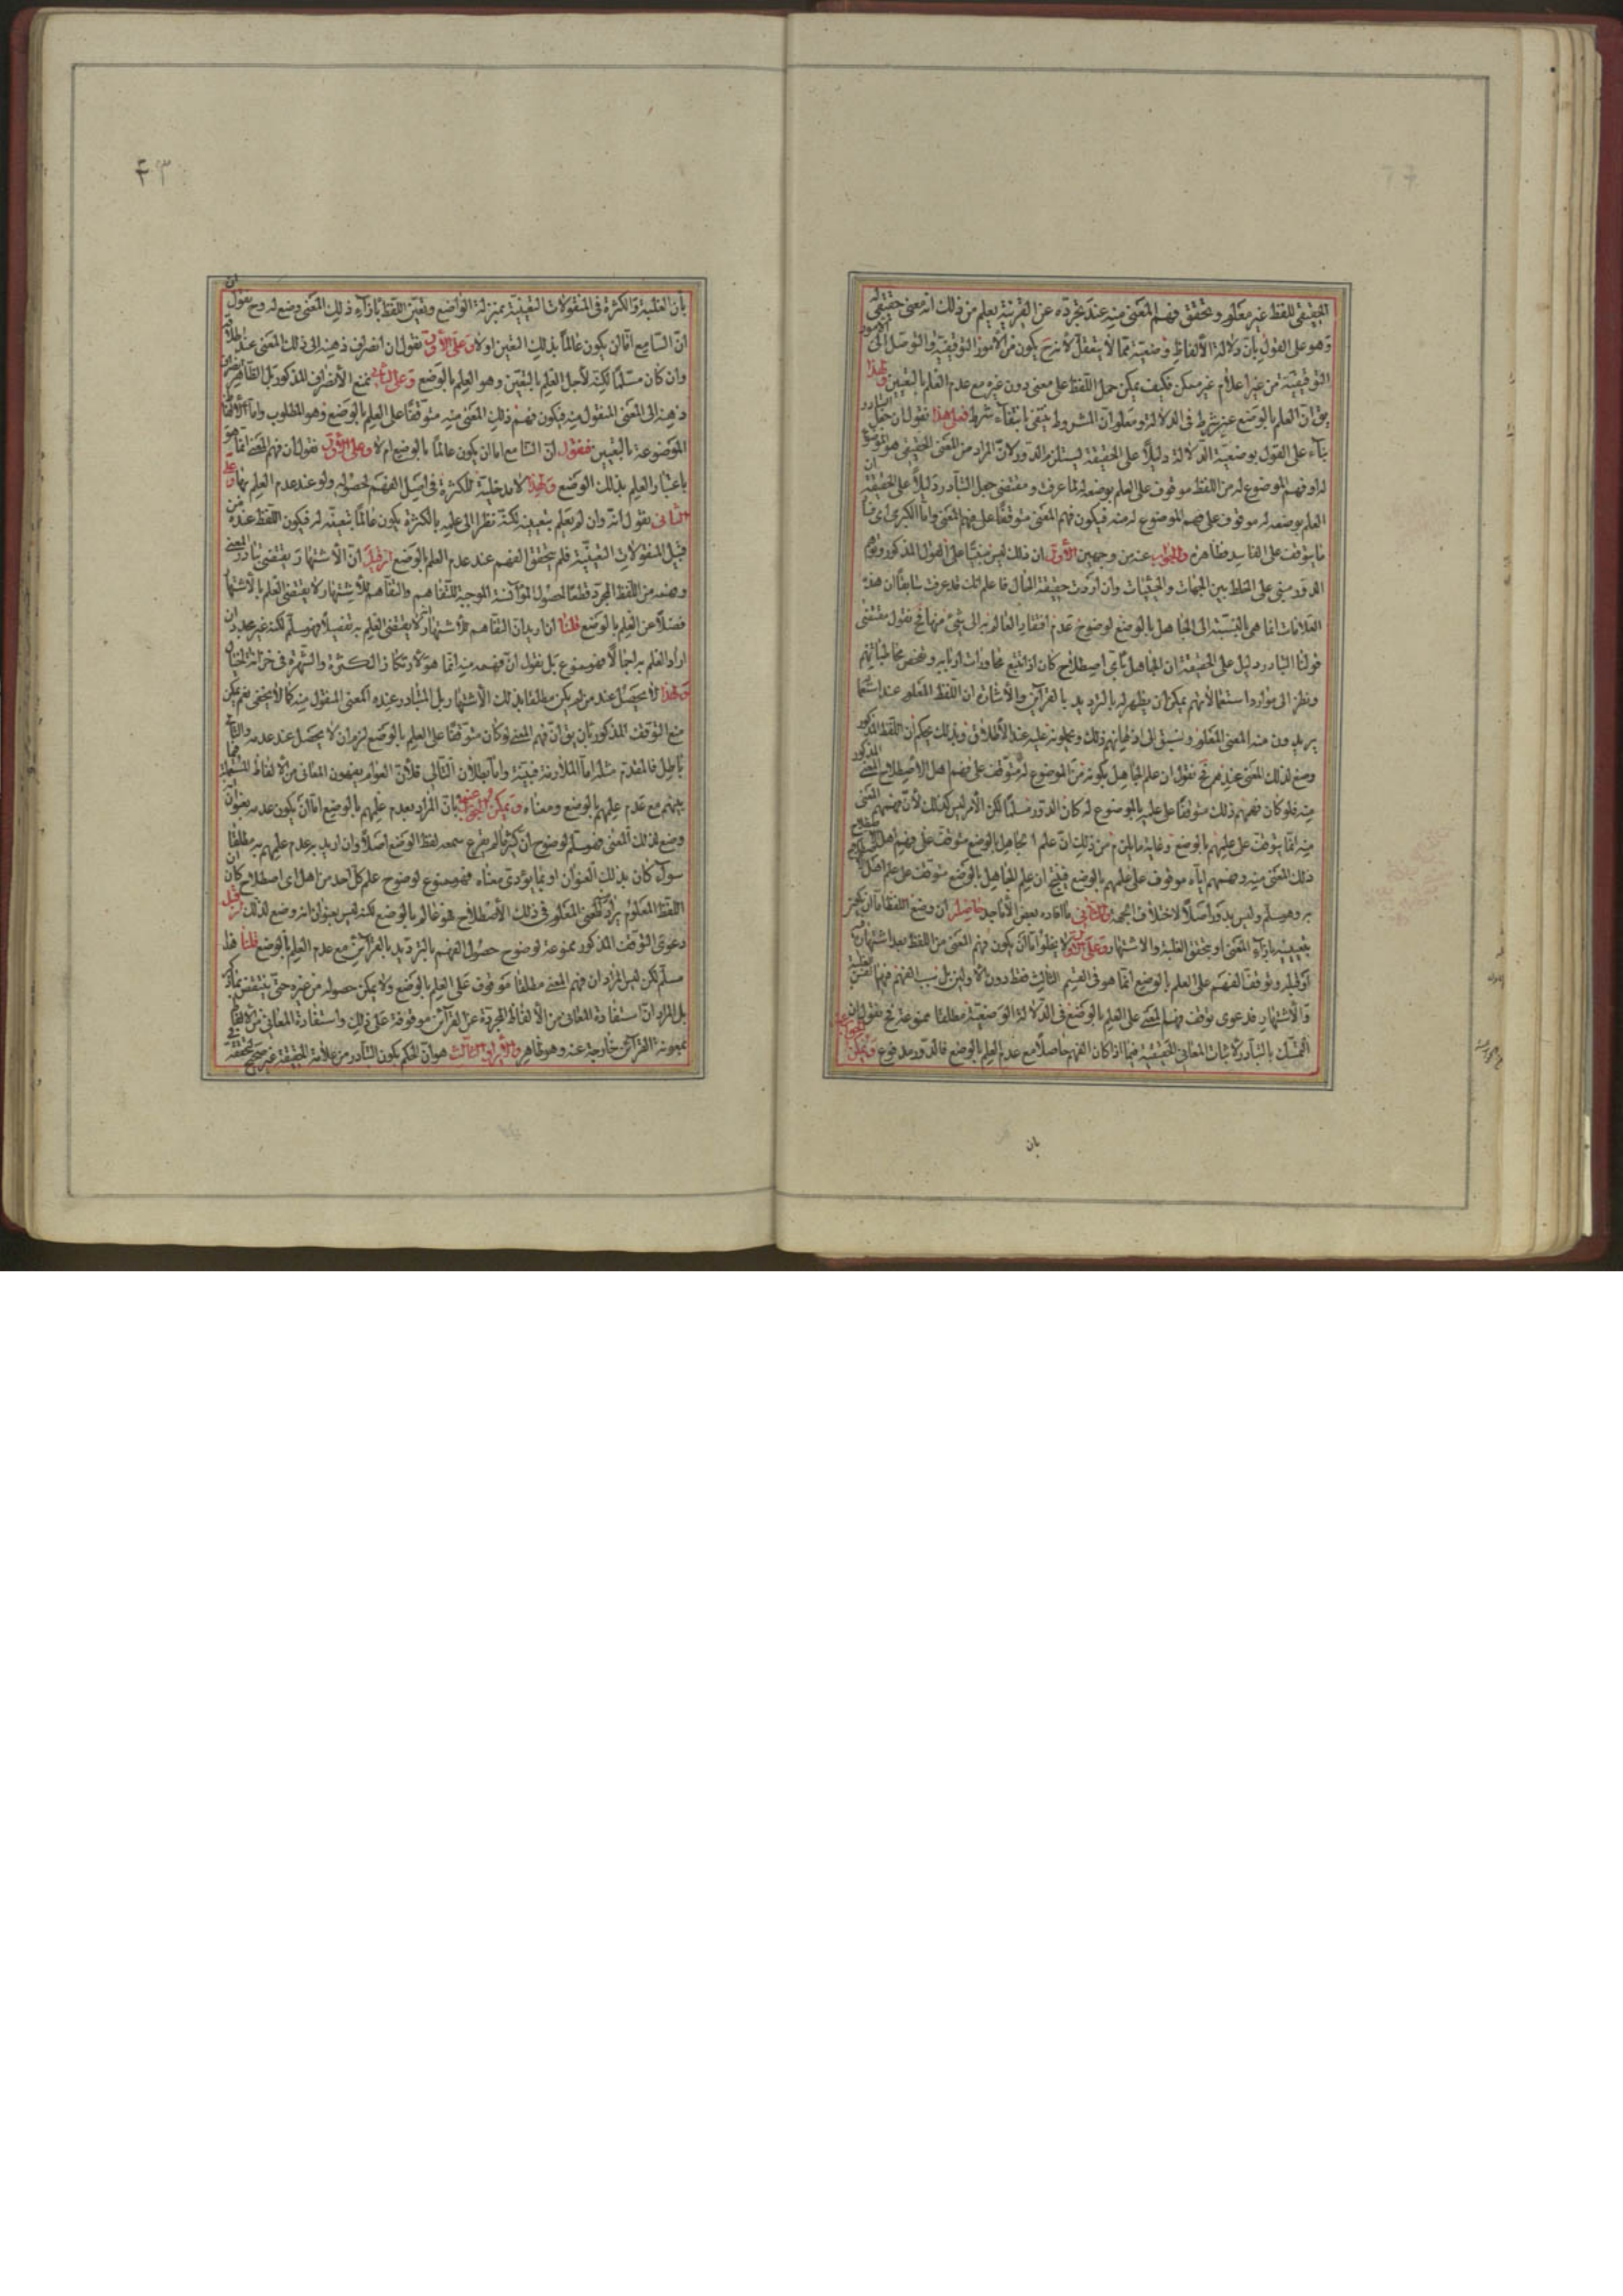 الحقيقي للفظ غير معلوم وتحقق فهم المعنى منه عند تجرده عن القرينة يعلم من ذلك انه معنى حقيقي له
وهو على القول بان دلالة الألفاظ وضعية مما لا يتعقل لانه ح يكون من الأمور التوقيفية والتوصل الى الامور
التوقيفية من غير اعلام غير ممكن فكيف يمكن حمل اللفظ على معنى دون غيره مع عدم العلم بالتعيين ولهذا
يق ان العلم بالوضع شرط في الدلالة ومعلوم ان المشروط ينتفي بانتفاء شرطه فعلى هذا نقول ان جعل التبادر
بناء على القول بوضعية الدلالة دليلا على الحقيقة يستلزم الدور لان المراد من المعنى الحقيقي هو الموضوع
له وفهم الموضوع له من اللفظ موقوف على العلم بوضعه له لما عرفت ومقتضى جعل التبادر دليلا على الحقيقة ان
العلم بوضعه له موقوف على فهم الموضوع له منه فيكون فهم المعنى متوقفا على فهم المعنى واما الكبرى اي فساد
ما يتوقف على الفاسد فظاهرة والجواب عنه من وجهين الأول ان ذلك ليس مبنيا على القول المذكور وتوهم
الدور مبني على الخلط بين الجهات والحيثيات وان اردت حقيقة الحال فاعلم انك قد عرفت سابقا ان هذه
العلامات انما هي بالنسبة الى الجاهل بالوضع لوضوح عدم افتقار العالم به الى شيء منها فح نقول مقتضى
قولنا التبادر دليل على الحقيقة ان الجاهل باي اصطلاح كان اذا تتبع محاورات اربابه وتفحص مخاطباتهم
ونظر الى موارد استعمالاتهم يمكن ان يظهر له بالترديد بالقرآئن والأشارة ان اللفظ المعلوم عند استعما
يريدون منه المعنى المعلوم ويسبق الى اذهانهم ذلك ويحملونه عليه عند الأطلاق وبذلك يحكم ان اللفظ المذكور
وضع لذلك المعنى عندهم فح نقول ان علم الجاهل بكونه من الموضوع له متوقف على فهم اهل الاصطلاح المعنى المذكور
منه فلو كان فهمهم ذلك متوقفا على علمه بالموضوع له كان الدور مسلما لكن الأمر ليس كذلك لأن فهمهم المعنى
منه انما يتوقف على علمهم بالوضع وغاية ما يلزم من ذلك ان علم الجاهل بالوضع متوقف على فهم اهل الاصطلاح
ذلك المعنى منه وفهمهم اياه موقوف على علمهم بالوضع فينتج ان علم الجاهل بالوضع متوقف على علم اهل
به وهو مسلم وليس بدور اصلا لاختلاف الجهة والثاني ما افاده بعض الأماجد حاصله ان وضع اللفظ اما ان يكون
بتعيينه بازاء المعنى او بتحقق الغلبة والاشتهار وعلى لا يخلوا اما ان يكون فهم المعنى من اللفظ بعد اشتهاره
او قبله وتوقف الفهم على العلم بالوضع انما هو في القسم الثالث فقط دون الاولين بل سبب الفهم فيهما الغلبة
والاشتهار فدعوى توقف فهم المعنى على العلم بالوضع في الدلالة الوضعية مطلقا ممنوعة فح نقول ان
التمسك بالتبادر لاثبات المعاني الحقيقية فيما اذا كان الفهم حاصلا مع عدم العلم بالوضع فالدور مدفوع ويمكن الجواب عنه
بان
۴۳
بان الغلبة والكثرة في المنقولات التعينية بمنزلة الواضع وتعين اللفظ بازاء ذلك المعنى وضع له وح نقول
ان السامع اما ان يكون عالما بذلك التعين اولا وعلى الأول نقول ان انصراف ذهنه الى ذلك المعنى عند اطلاقه
وان كان مسلما لكنه لأجل العلم بالتعين وهو العلم بالوضع وعلى الثاني نمنع الأنصراف المذكور بل الظاهر انصراف
ذهنه الى المعنى المنقول منه فيكون فهم ذلك المعنى منه متوقفا على العلم بالوضع وهو المطلوب واما الألفاظ
الموضوعة بالتعيين فنقول ان السامع اما ان يكون عالما بالوضع ام لا وعلى الأول نقول ان فهم المعنى انما هو
باعتبار العلم بذلك الوضع ولهذا لا مدخلية للكثرة في اصل الفهم لحصوله ولو عند عدم العلم بها وعلى
الثاني نقول انه وان لم يعلم بتعيينه لكنه نظرا الى علمه بالكثرة يكون عالما بتعينه له فيكون اللفظ عنده من
قبيل المنقولات التعينية فلم يتحقق الفهم عند عدم العلم بالوضع ان قيل ان الأشتهار يقتضي تبادر المعنى
وفهمه من اللفظ المجرد قطعا لحصول المؤانسة الموجبة للتفاهم والتفاهم للأشتهار لا يقتضي العلم بالأشتهار
فضلا عن العلم بالوضع قلنا ان اريد ان التفاهم للأشتهار لا يقتضي العلم به تفصيلا فهو مسلم لكنه غير مجد وان
اراد العلم به اجمالا فهو ممنوع بل نقول ان فهمه منه انما هو لارتكاز الكثرة والشهرة في خزانة الخيال
ولهذا لا يحصل عند من لم يكن مطلقا بذلك الأشتهار بل المتبادر عنده المعنى المنقول منه كما لا يخفى نعم يمكن
منع التوقف المذكور بان يق ان فهم المعنى لو كان متوقفا على العلم بالوضع لزم ان لا يحصل عند عدمه والتالي
باطل فالمقدم مثله اما الملازمة فبينة واما بطلان التالي فلأن العوام يفهمون المعاني من الألفاظ المستعملة فيما
بينهم مع عدم علمهم بالوضع ومعناه ويمكن الجواب عنه بان المراد بعدم علمهم بالوضع اما ان يكون عدمه بعنوان
وضع لذلك المعنى فهو مسلم لوضوح ان كثيرا لم يقرع سمعه لفظ الوضع اصلا وان اريد به عدم علمهم به مطلقا
سوآء كان بذلك العنوان او بما يؤدي معناه فهو ممنوع لوضوح علم كل احد من اهل اي اصطلاح كان
اللفظ المعلوم يراد المعنى المعلوم في ذلك الأصطلاح فهو عالم بالوضع لكنه ليس بعنوان انه وضع لذلك فان قيل
دعوى التوقف المذكور ممنوعة لوضوح حصول الفهم بالترديد بالقرآئن مع عدم العلم بالوضع قلنا هذا
مسلم لكن ليس المراد ان فهم المعنى مطلقا موقوف على العلم بالوضع ولا يمكن حصوله من غيره حتى ينتقض بما ذكر
بل المراد ان استفادة المعاني من الألفاظ المجردة عن القرآئن موقوفة على ذلك واستفادة المعاني من الألفاظ
بمعونة القرآئن خارجة عنه وهو ظاهر والأيراد الثالث هو ان الحكم بكون التبادر من علامة الحقيقة غير صحيح لتحققه في